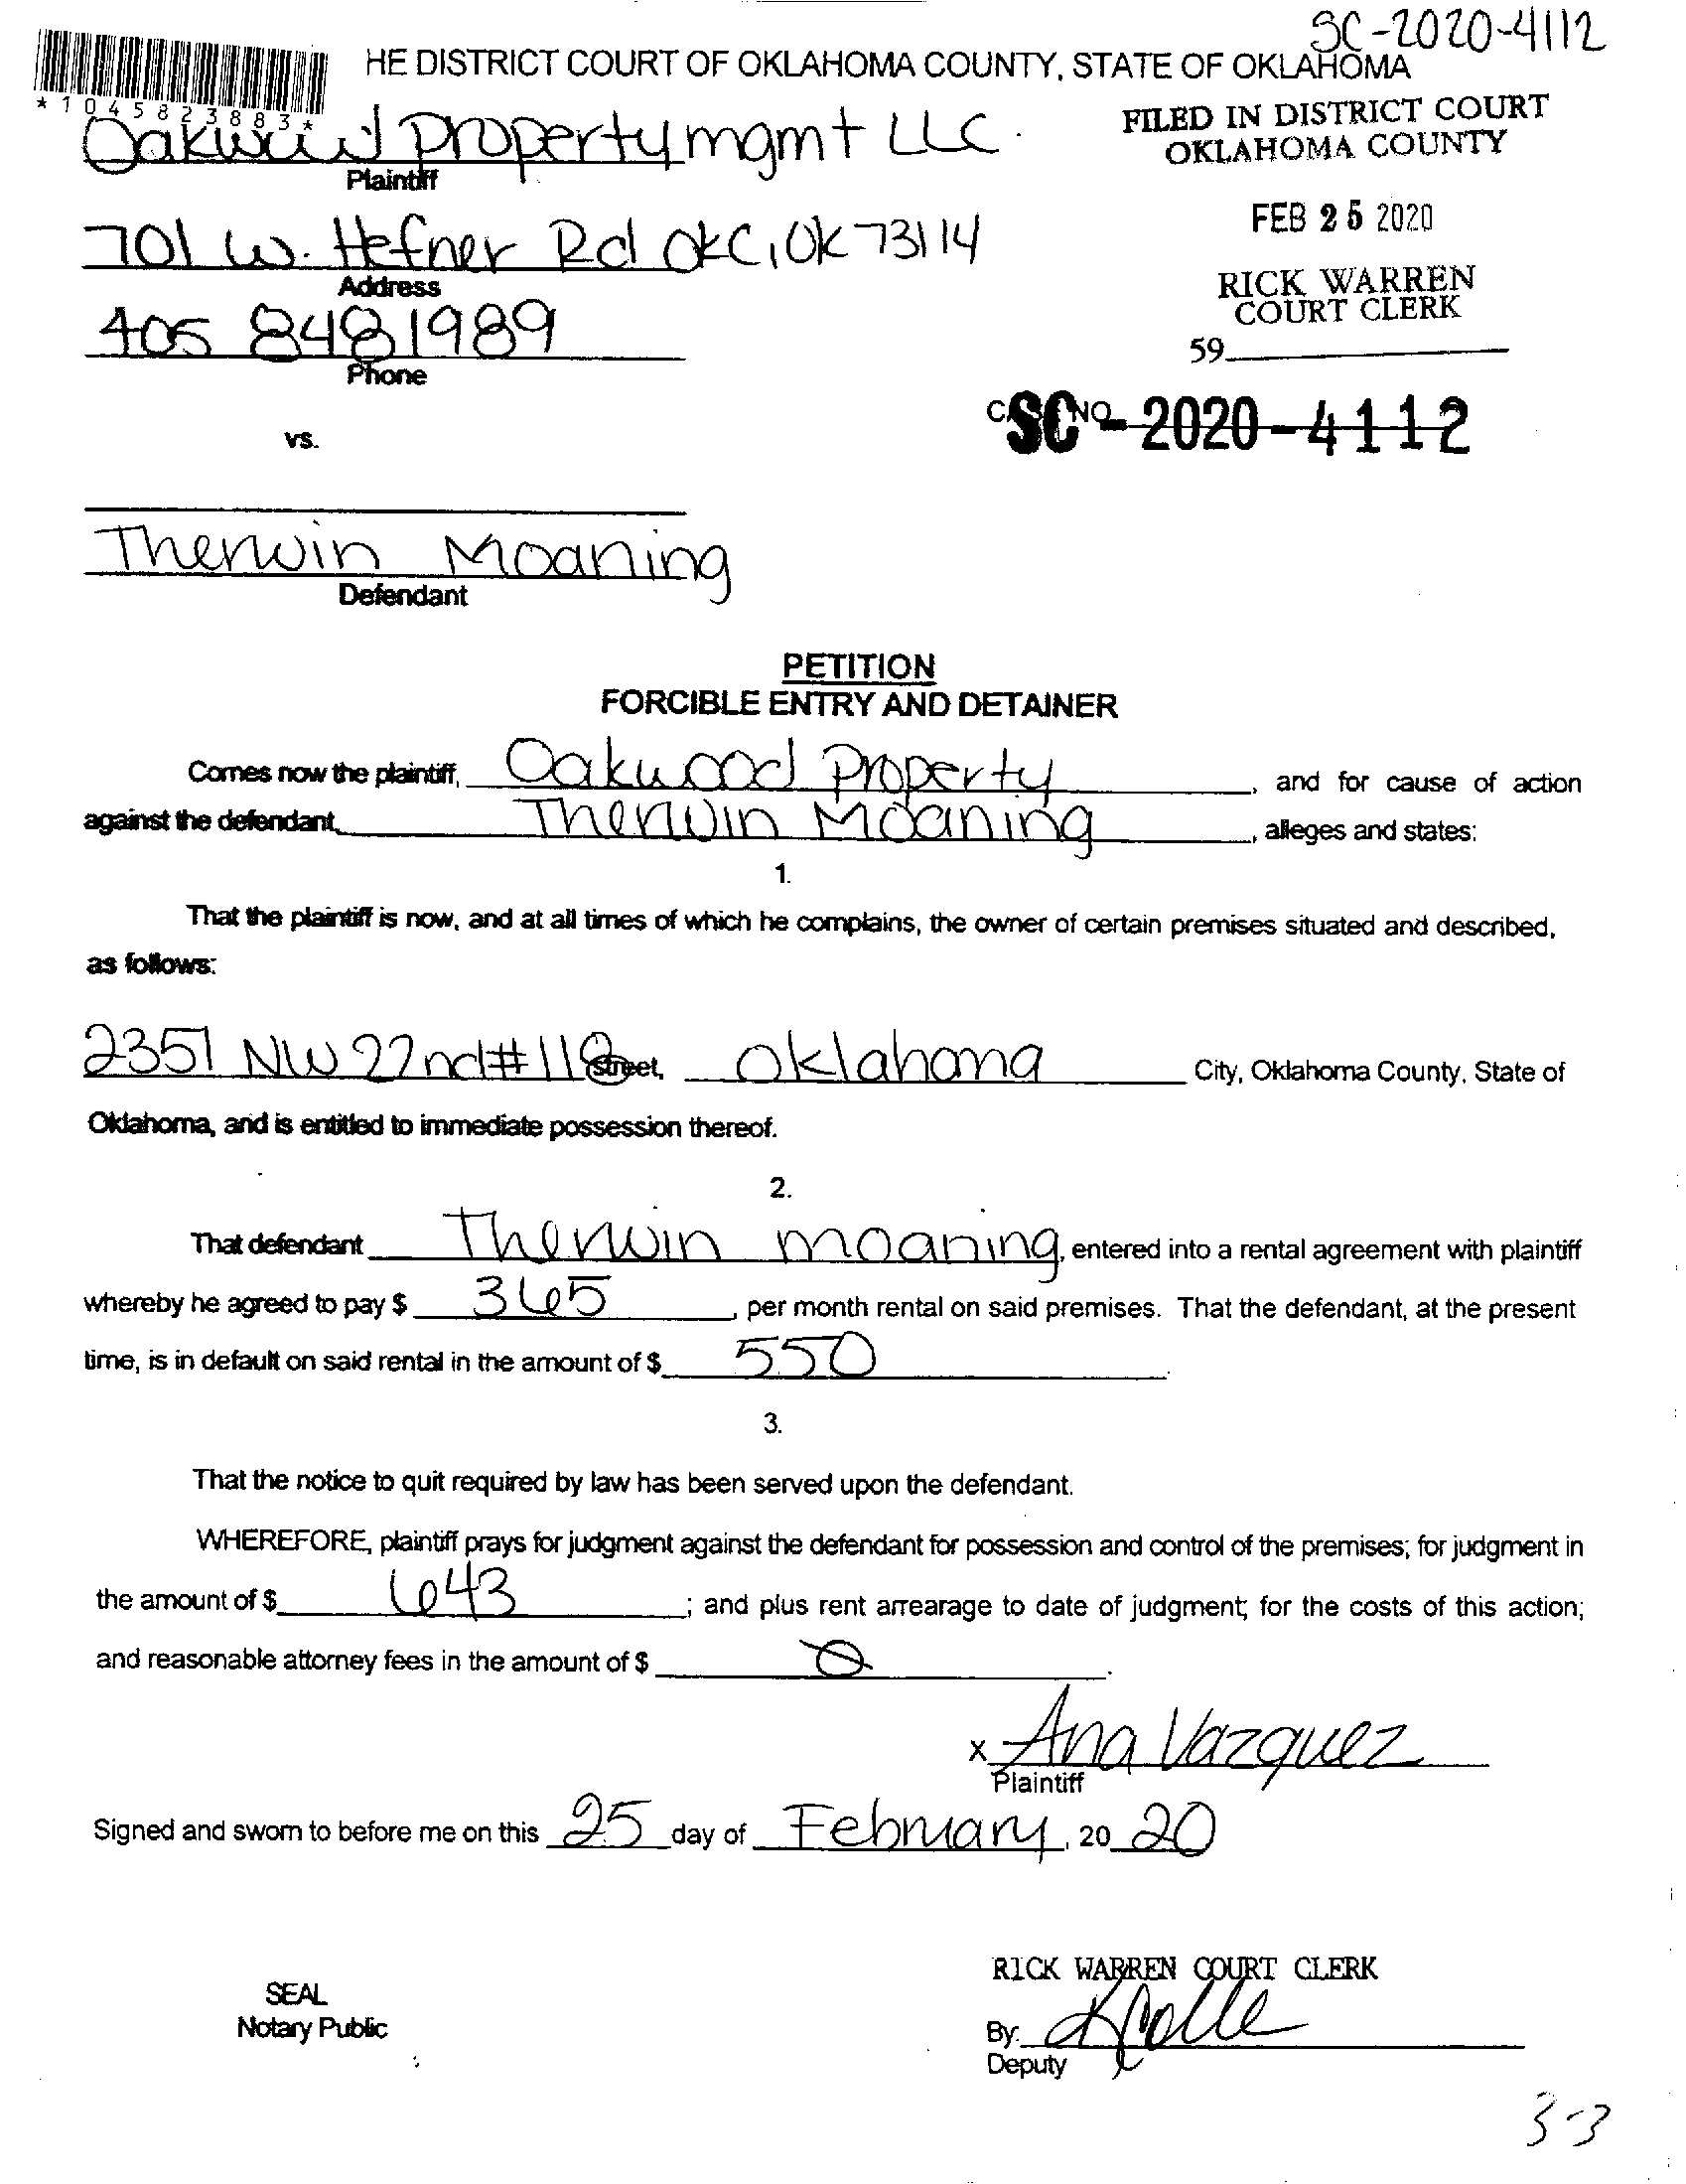 SC-2020-4112
HE DISTRICT COURT OF OKLAHOMA COUNTY, STATE OF OKLAHOMA
*1045823883*
Oakwood Property mgmt LLC.
Plaintiff
FILED IN DISTRICT COURT
OKLAHOMA COUNTY
701 W. Hefner Rd OKC, OK 73114
Address
FEB 25 2020
RICK WARREN
COURT CLERK
405 848 1989
Phone
59
SC-2020-4112
vs.
Therwin Moaning
Defendant
PETITION
FORCIBLE ENTRY AND DETAINER
Comes now the plaintiff, Oakwood Property, and for cause of action
against the defendant, Therwin Moaning, alleges and states:
1.
That the plaintiff is now, and at all times of which he complains, the owner of certain premises situated and described,
as follows:
2351 NW 22nd #118 Street, Oklahoma City, Oklahoma County, State of
Oklahoma, and is entitled to immediate possession thereof.
2.
That defendant Therwin moaning, entered into a rental agreement with plaintiff
whereby he agreed to pay $ 365, per month rental on said premises. That the defendant, at the present
time, is in default on said rental in the amount of $ 550.
3.
That the notice to quit required by law has been served upon the defendant.
WHEREFORE, plaintiff prays for judgment against the defendant for possession and control of the premises; for judgment in
the amount of $ 643; and plus rent arrearage to date of judgment; for the costs of this action;
and reasonable attorney fees in the amount of $ 0.
x Ana Vazquez
Plaintiff
Signed and sworn to before me on this 25 day of February, 20 20
RICK WARREN COURT CLERK
SEAL
Notary Public
By:
Deputy
3-3